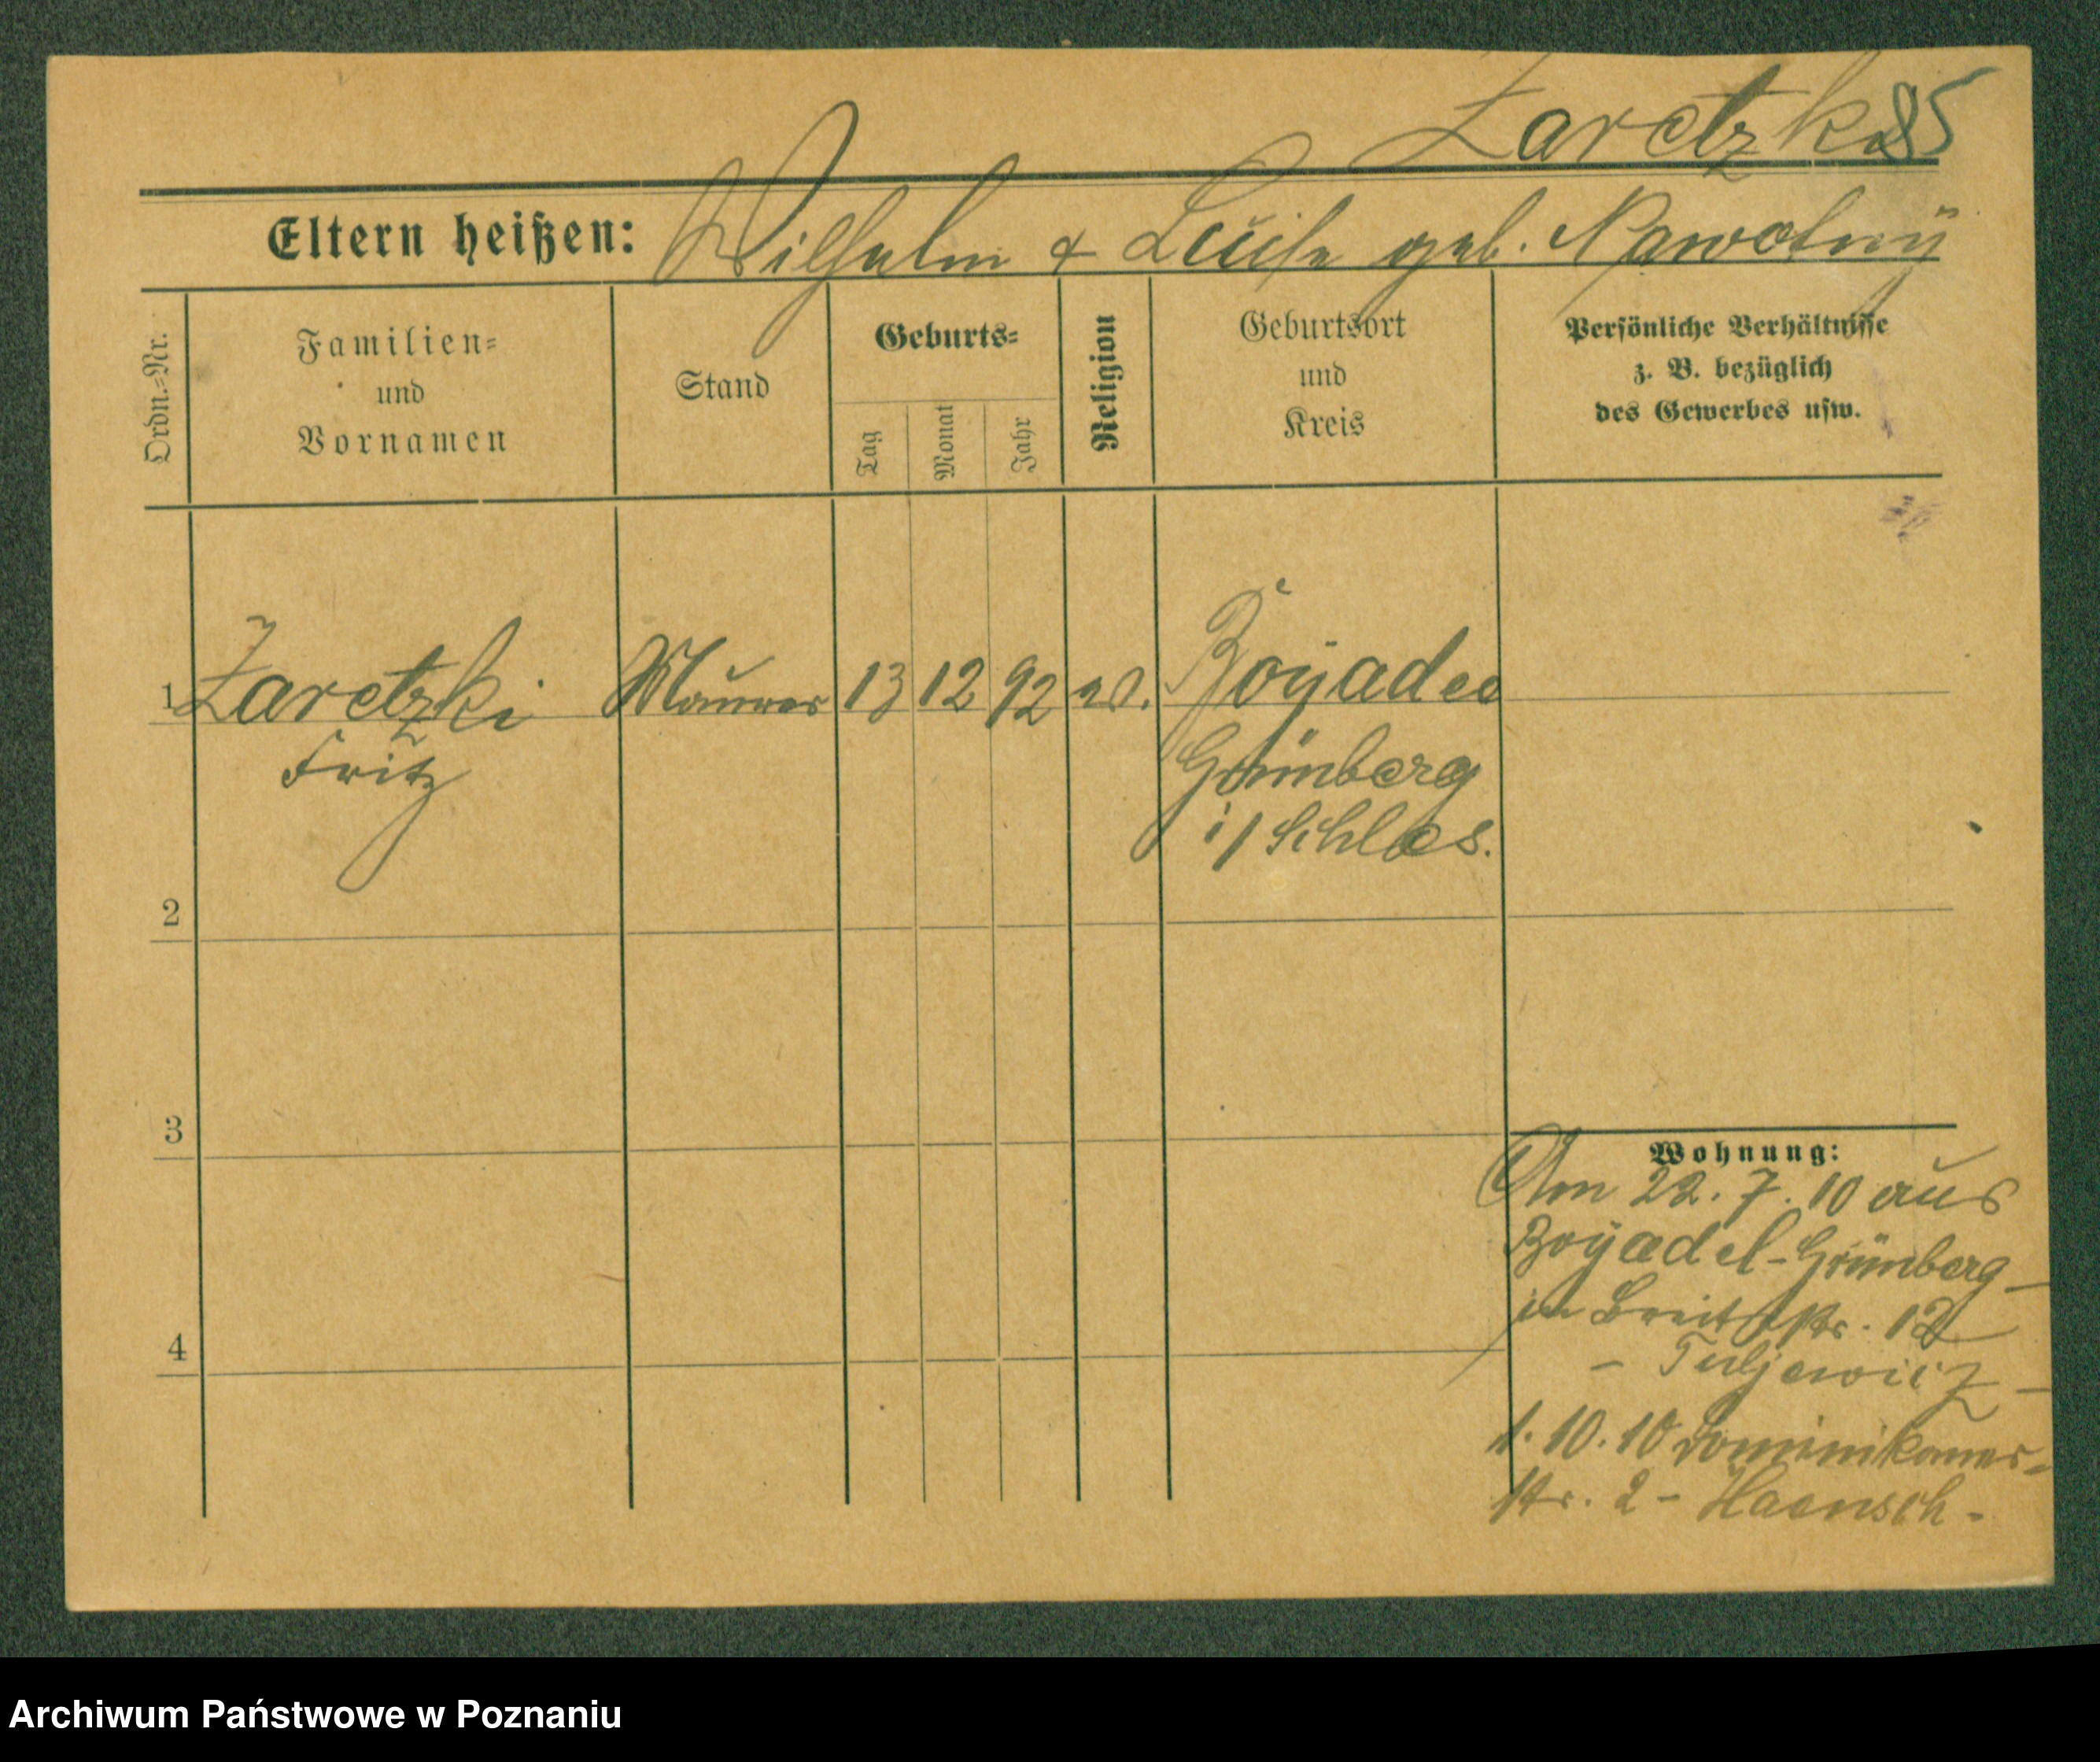 Zaretzki 85
Eltern heißen: Wilhelm & Luise geb. Nawolny
Ordn.-Nr.
Familien-
und
Vornamen
Stand
Geburts-
Tag
Monat
Jahr
Religion
Geburtsort
und
Kreis
Persönliche Verhältnisse
z. B. bezüglich
des Gewerbes usw.
1 Zaretzki Maurer 13 12 92 ev. Boyadel
Fritz Grünberg
i/Schles.
2
3
4
Wohnung:
Am 22. 7. 10 aus
Boyadel-Grünberg-
in Breitestr. 12
1. 10. 10 Dominikaner-
str. 2 - Haensch -
Archiwum Państwowe w Poznaniu